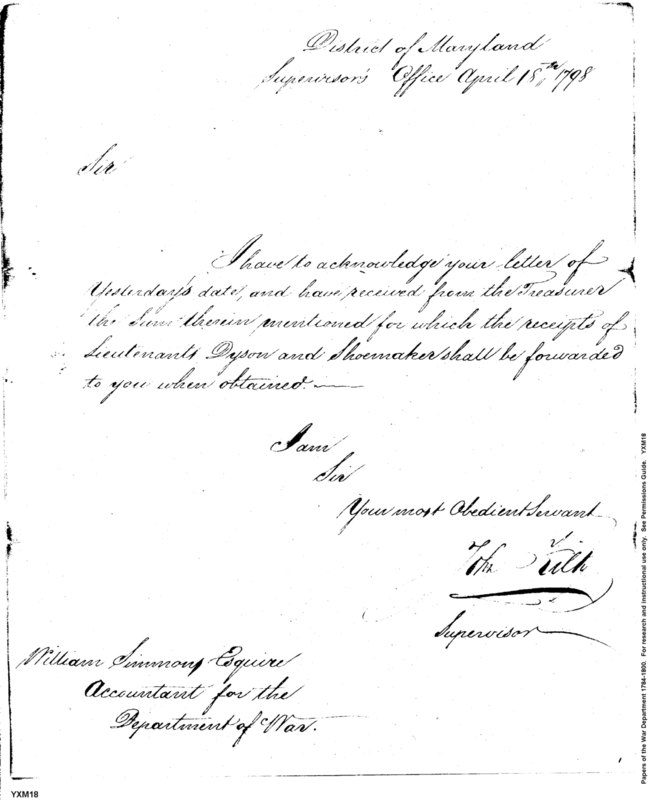 District of Maryland
Supervisor's Office April 18th 1798
Sir
I have to acknowledge your letter of
Yesterday's date, and have received from the Treasurer
the Sum therein mentioned for which the receipts of
Lieutenants Dyson and Shoemaker shall be forwarded
to you when obtained.
I am
Sir
Your most Obedient Servant
Supervisor
William Simmons Esquire
Accountant for the
Department of War.
YXM18
Papers of the War Department 1784-1800. For research and instructional use only. See Permissions Guide. YXM18